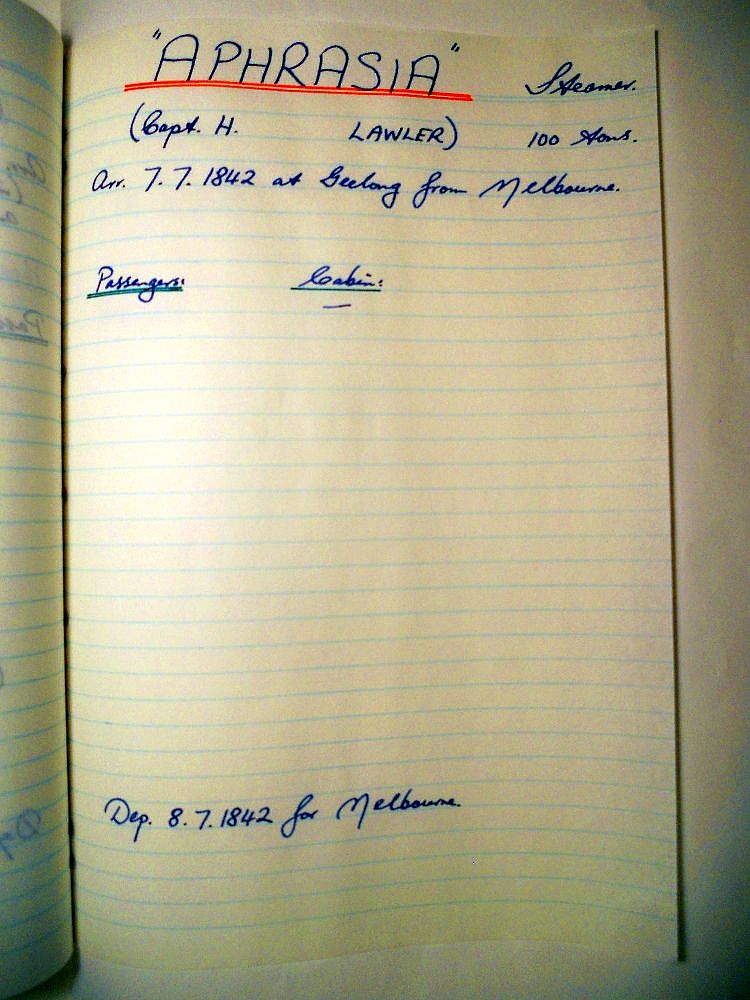 "APHRASIA" Steamer.
(Capt. H. LAWLER) 100 tons.
Arr. 7.7.1842 at Geelong from Melbourne.
Passengers: Cabin:
—
Dep. 8.7.1842 for Melbourne.